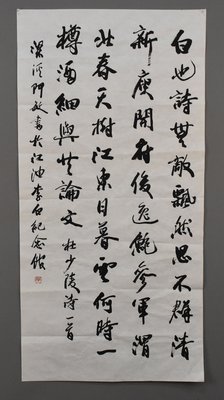 白也詩無敵飄然思不群清
新庾開府俊逸鮑參軍渭
北春天樹江東日暮雲何時一
樽酒細與共論文 杜少陵詩一首
書於江油李白紀念館